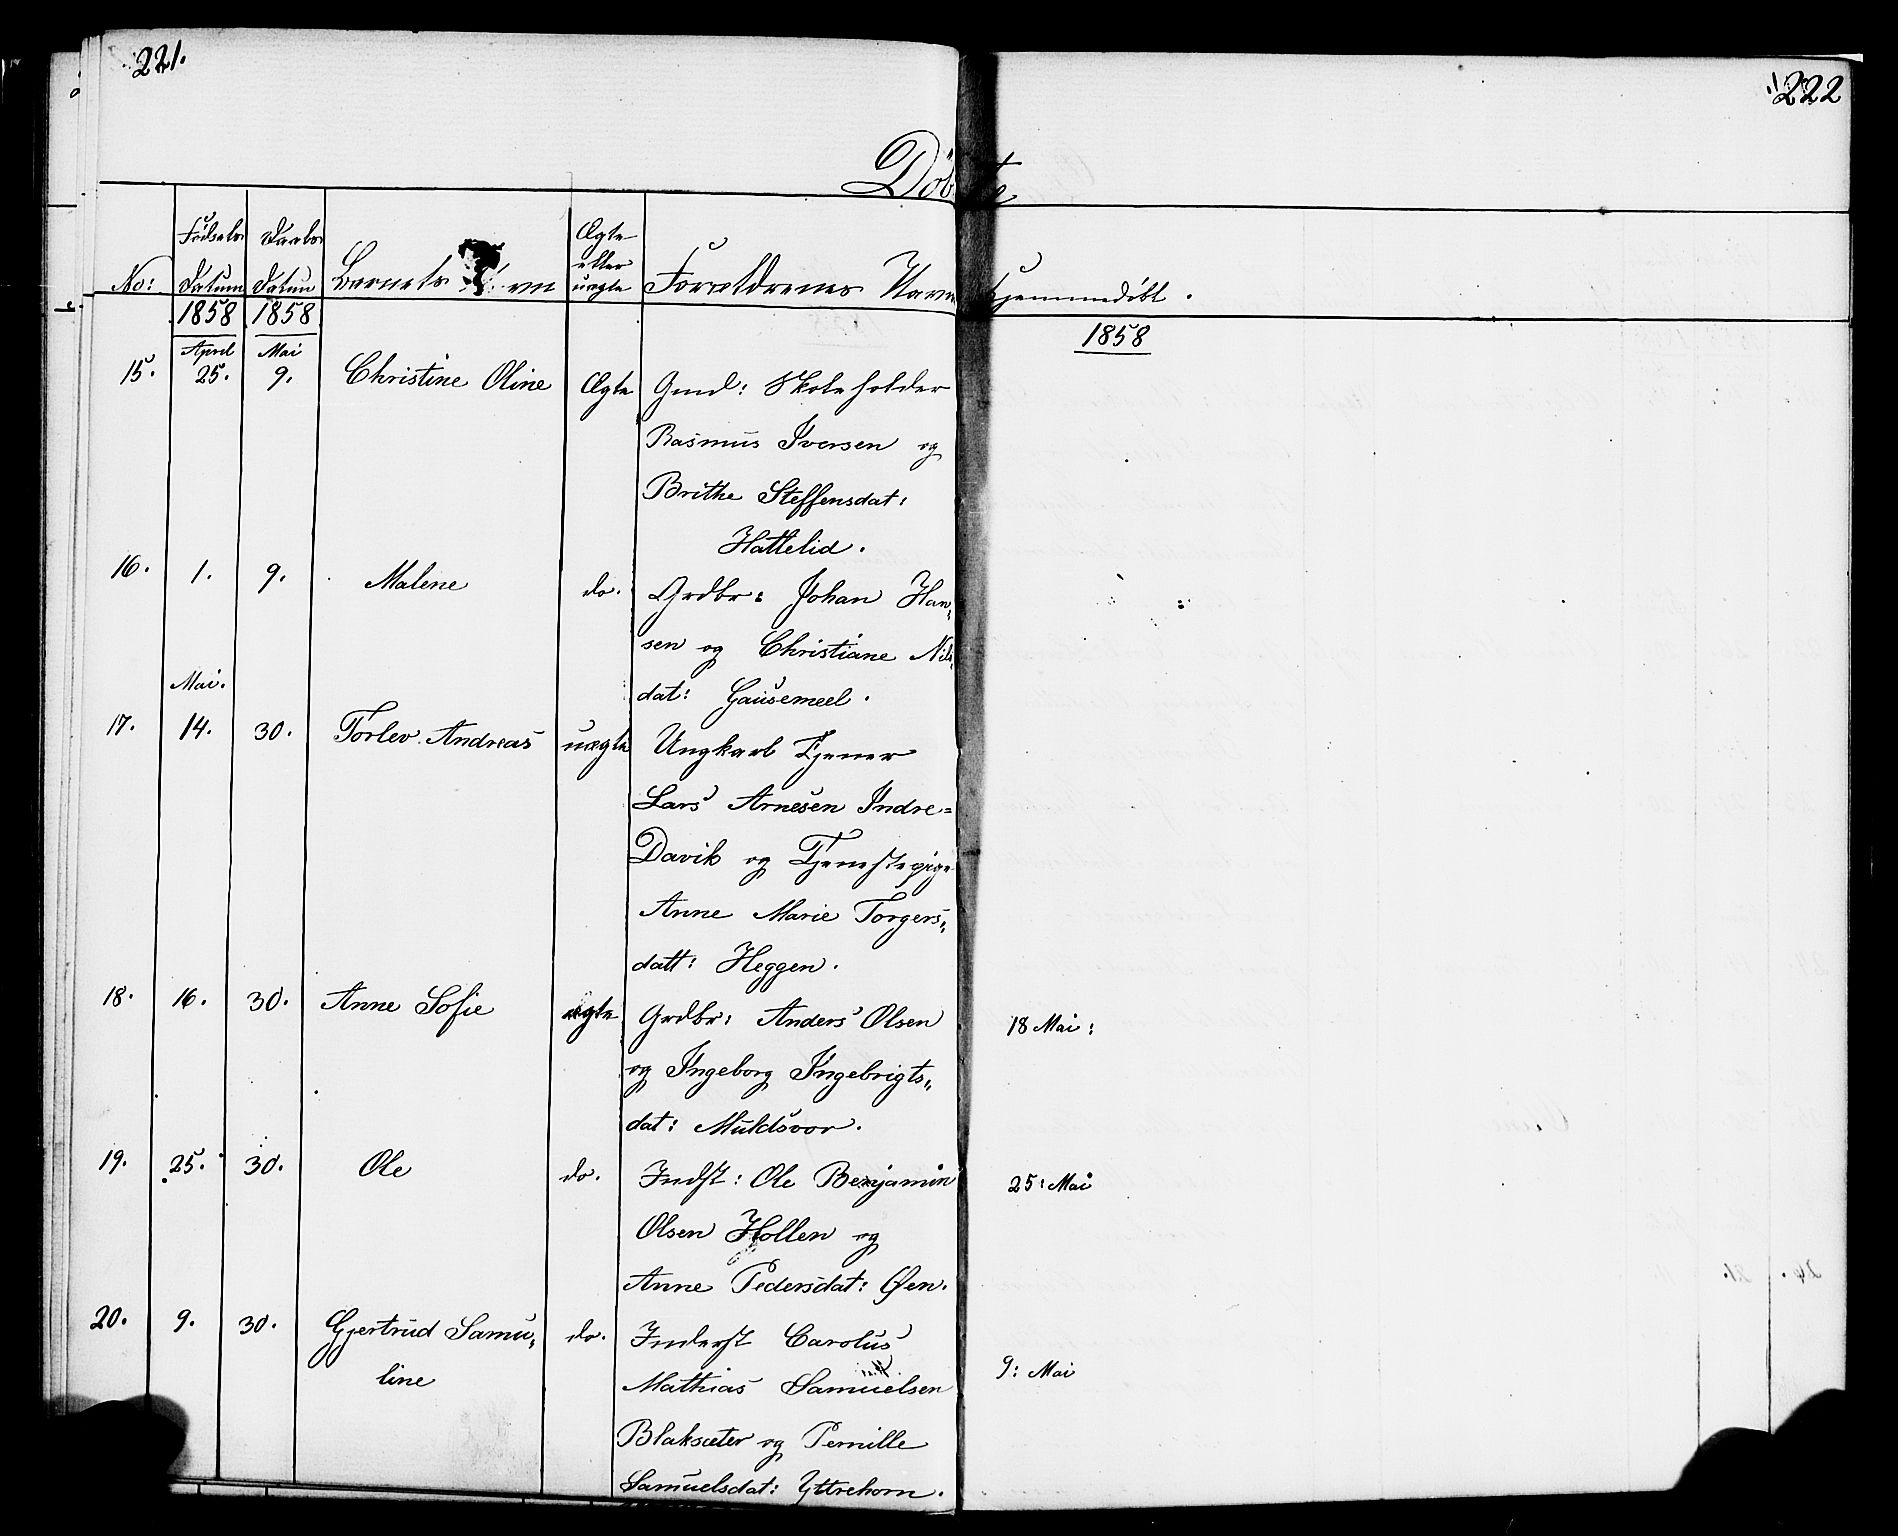 221.
222
Döbte
No:
Födsels
Datum
Daabs
Datum
Barnets
Ægte
eller
uægte
Forældrenes Navne
Hjemmedöbt.
1858 1858 1858
April Mai
15. 25. 9. Christine Oline Ægte Gmd: Skoleholder
Rasmus Iversen og
Brithe Steffensdat:
Hattelid.
16. 1. 9. Malene do. Grdbr: Johan Han„
sen og Christiane Nils„
dat: Gausemeel.
Mai.
17. 14. 30. Torlev Andreas uægte Ungkarl Tjener
Lars Arnesen Indre=
Davik og Tjenestepige
Anne Marie Torgers„
datt: Heggen.
18. 16. 30. Anne Sofie ægte Grdbr: Anders Olsen 18 Mai:
og Ingeborg Ingebrigts„
dat: Muldsvor.
19. 25. 30. Ole do. Indst: Ole Benjamin 25: Mai
Olsen Hollen og
Anne Pedersdat: Øen.
20. 9. 30. Gjertrud Samu„ do. Inderst Carolus 9: Mai
line Mathias Samuelsen
Blaksæter og Pernille
Samuelsdat: Yttrehorn.